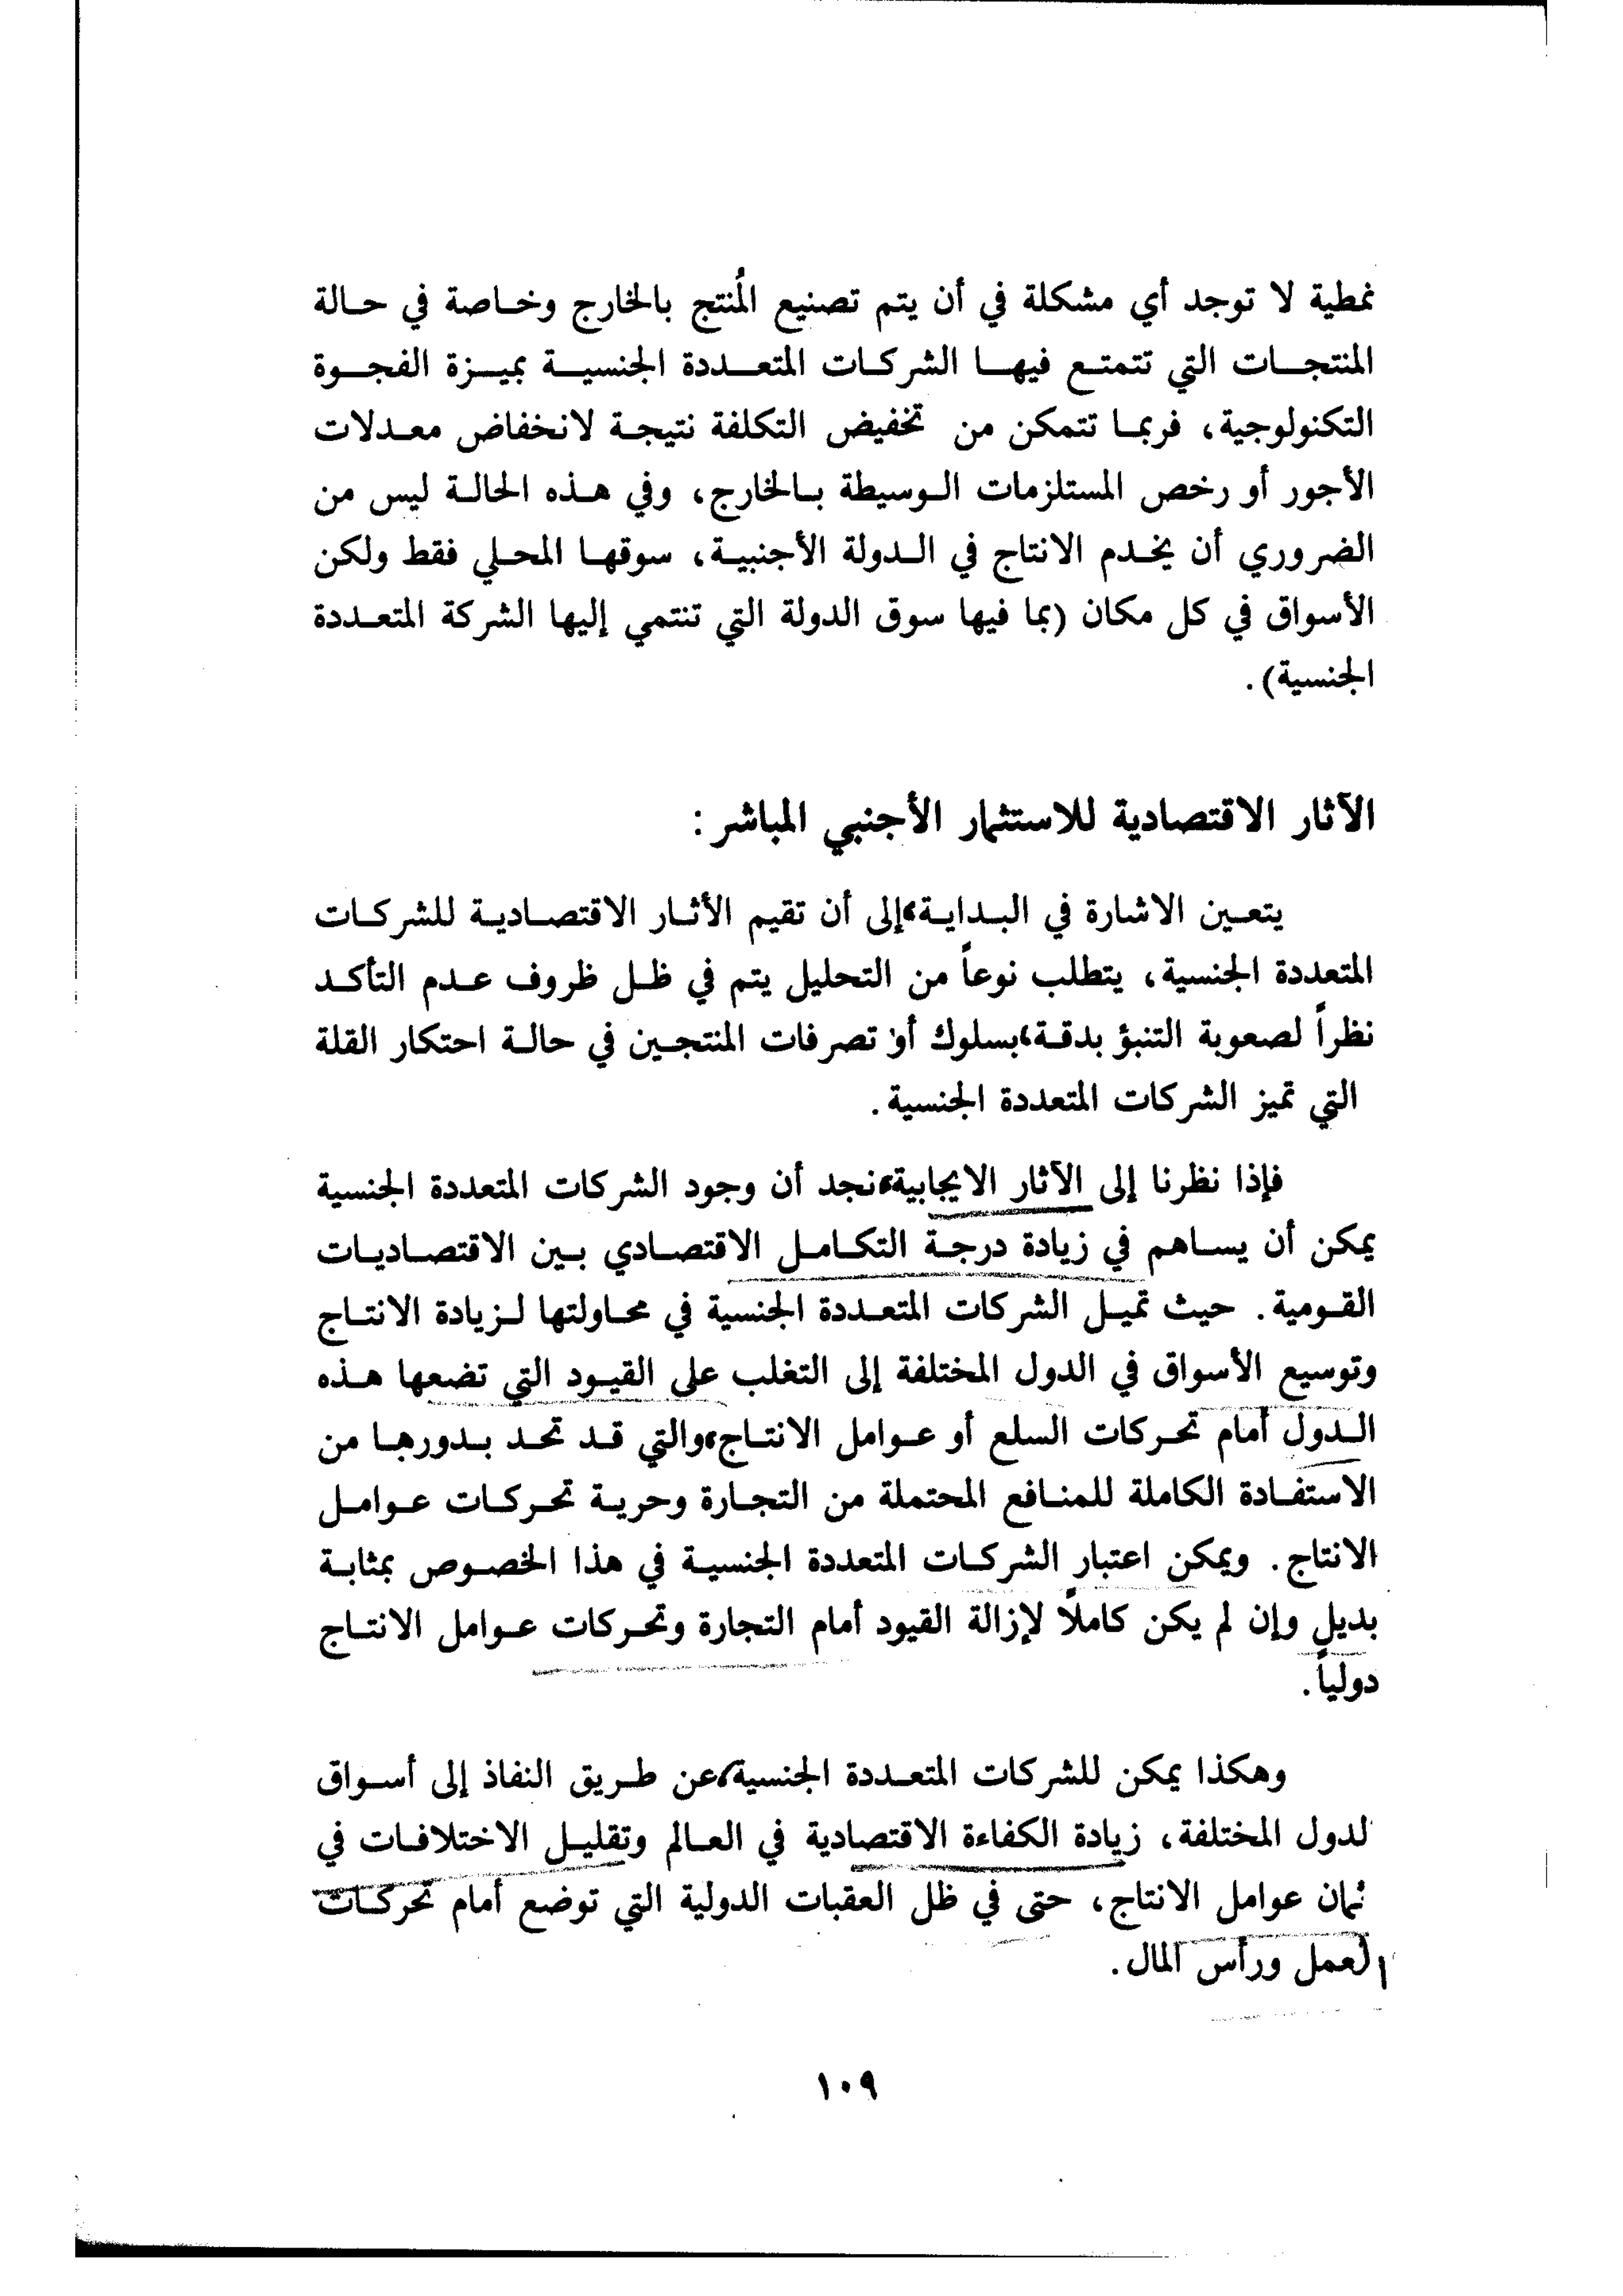 نمطية لا توجد أي مشكلة في أن يتم تصنيع المُنتج بالخارج وخاصة في حالة
المنتجات التي تتمتع فيها الشركات المتعددة الجنسية بميزة الفجوة
التكنولوجية، فربما تتمكن من تخفيض التكلفة نتيجة لانخفاض معدلات
الأجور أو رخص المستلزمات الوسيطة بالخارج، وفي هذه الحالة ليس من
الضروري أن يخدم الانتاج في الدولة الأجنبية، سوقها المحلي فقط ولكن
الأسواق في كل مكان (بما فيها سوق الدولة التي تنتمي إليها الشركة المتعددة
الجنسية).
الآثار الاقتصادية للاستثمار الأجنبي المباشر:
يتعين الاشارة في البداية، إلى أن تقيم الأثار الاقتصادية للشركات
المتعددة الجنسية، يتطلب نوعاً من التحليل يتم في ظل ظروف عدم التأكد
نظراً لصعوبة التنبؤ بدقة، بسلوك أو تصرفات المنتجين في حالة احتكار القلة
التي تميز الشركات المتعددة الجنسية.
فإذا نظرنا إلى الآثار الايجابية، نجد أن وجود الشركات المتعددة الجنسية
يمكن أن يساهم في زيادة درجة التكامل الاقتصادي بين الاقتصاديات
القومية. حيث تميل الشركات المتعددة الجنسية في محاولتها لزيادة الانتاج
وتوسيع الأسواق في الدول المختلفة إلى التغلب على القيود التي تضعها هذه
الدول أمام تحركات السلع أو عوامل الانتاج، والتي قد تحد بدورها من
الاستفادة الكاملة للمنافع المحتملة من التجارة وحرية تحركات عوامل
الانتاج. ويمكن اعتبار الشركات المتعددة الجنسية في هذا الخصوص بمثابة
بديل وإن لم يكن كاملاً لإزالة القيود أمام التجارة وتحركات عوامل الانتاج
دولياً.
وهكذا يمكن للشركات المتعددة الجنسية، عن طريق النفاذ إلى أسواق
لدول المختلفة، زيادة الكفاءة الاقتصادية في العالم وتقليل الاختلافات في
ثمان عوامل الانتاج، حتى في ظل العقبات الدولية التي توضع أمام تحركات
العمل ورأس المال.
١٠٩